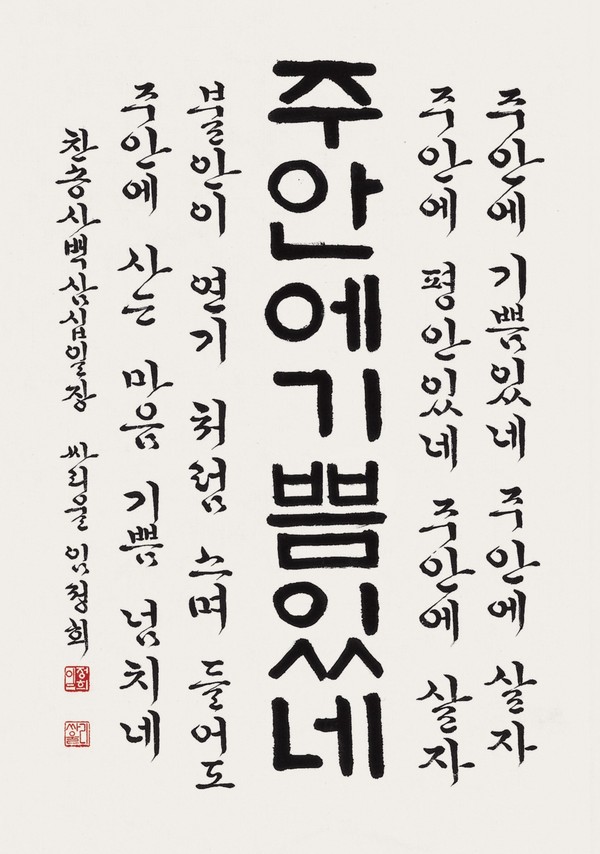 주안에 기쁨있네 주안에 살자
주안에 평안있네 주안에 살자
주안에기쁨있네
불안이 연기 처럼 스며 들어도
주안에 사는 마음 기쁨 넘치네
찬송사백삼십일장 싸리울 임정희